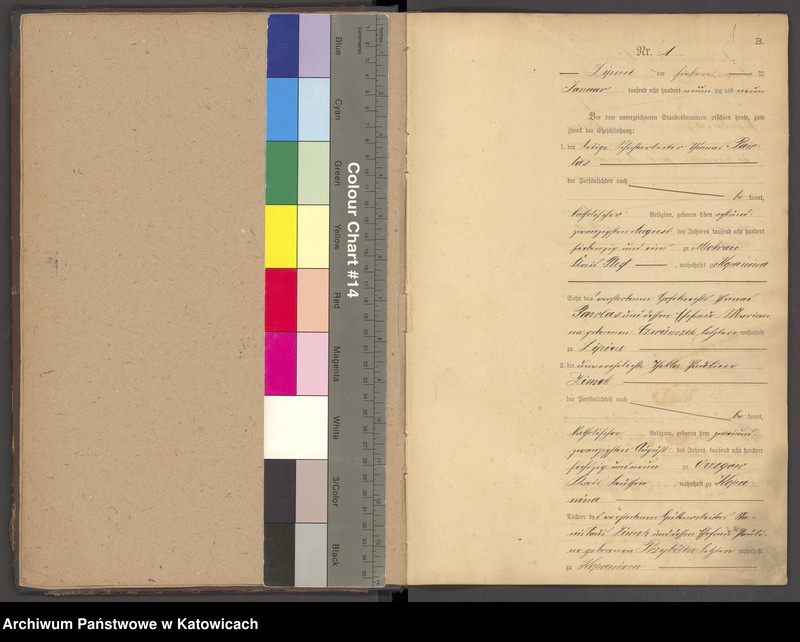 Blue
Cyan
Green
Yellow
Red
Magenta
White
3/Color
Black
Colour Chart #14
Centimetres
Inches
1
B.
Nr. 1
Lipine am sieben ten
Januar tausend acht hundert neunzig und neun
Vor dem unterzeichneten Standesbeamten erschien heute, zum
Zweck der Eheschließung:
1. der ledige
der Persönlichkeit nach
be kannt,
katholischer Religion, geboren den achtund-
zwanzigsten August des Jahres tausend acht hundert
siebenzig und ein zu Mokrau
Kreis Pleß, wohnhaft zu Kopanina
Sohn des verstorbenen
und dessen Ehefrau Marian-
na geborenen letztere wohnhaft
zu Lipine
2. die unverehelichte
der Persönlichkeit nach
be kannt,
katholischer Religion, geboren den zweiund-
zwanzigsten August des Jahres tausend acht hundert
sechzig und neun zu Orzegow
Kreis Beuthen, wohnhaft zu Kopa-
nina
Tochter des verstorbenen Hüttenarbeiters
und dessen Ehefrau Pauli-
ne geborenen letztere wohnhaft
zu Kopanina
Archiwum Państwowe w Katowicach